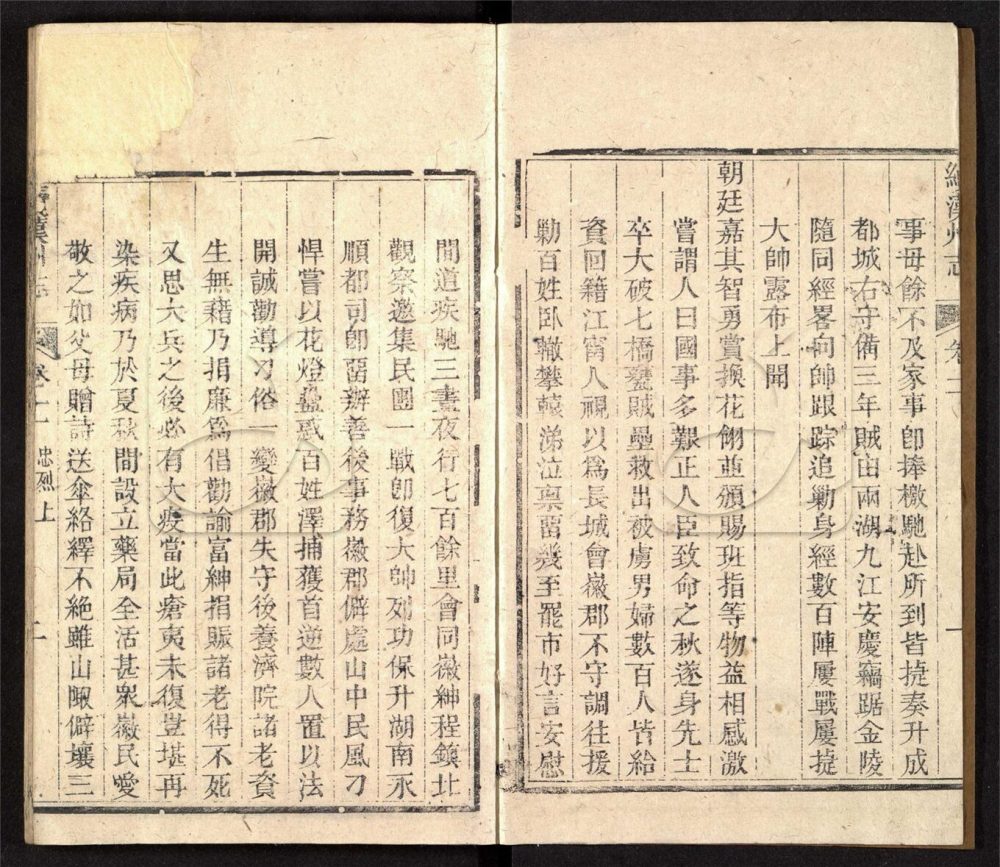 續漢州志 卷二 一
事母餘不及家事卽捧檄馳赴所到皆捷奏升成
都城右守備三年賊由兩湖九江安慶竊踞金陵
隨同經畧向帥跟踪追勦身經數百陣屢戰屢捷
大帥露布上聞
朝廷嘉其智勇賞換花翎並頒賜班指等物益相感激
嘗謂人曰國事多艱正人臣致命之秋遂身先士
卒大破七橋甕賊壘救出被虜男婦數百人皆給
資回籍江甯人視以爲長城會徽郡不守調往援
勦百姓臥轍攀轅涕泣稟畱幾至罷市好言安慰
間道疾馳三晝夜行七百餘里會同徽紳程鎮北
觀察邀集民團一戰卽復大帥列功保升湖南永
順都司卽畱辦善後事務徽郡僻處山中民風刁
悍嘗以花燈蠱惑百姓澤捕獲首逆數人置以法
開誠勸導刁俗一變徽郡失守後養濟院諸老資
生無藉乃捐廉爲倡勸諭富紳捐賑諸老得不死
又思大兵之後必有大疫當此瘡夷未復豈堪再
染疾病乃於夏秋間設立藥局全活甚衆徽民愛
敬之如父母贈詩送傘絡繹不絕雖山陬僻壤三
漢州志 卷二 忠烈上 二